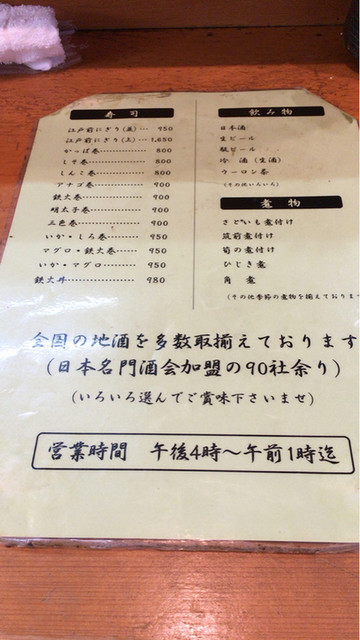 寿司
江戸前にぎり(並)… 950
江戸前にぎり(上)… 1,650
かっぱ巻………… 800
しそ巻………… 800
しんこ巻………… 800
アナゴ巻………… 900
鉄火巻………… 900
明太子巻………… 900
三色巻………… 900
いか・しろ巻……… 950
マグロ・鉄火巻…… 950
いか・マグロ……… 950
鉄火丼………… 980
飲み物
日本酒
生ビール
瓶ビール
冷酒(生酒)
ウーロン茶
(その他いろいろ)
煮物
さといも煮付け
筑前煮付け
筍の煮付け
ひじき煮
角煮
(その他季節の煮物を揃えております
全国の地酒を多数取揃えております
(日本名門酒会加盟の90社余り)
(いろいろ選んでご賞味下さいませ)
営業時間 午後4時～午前1時迄